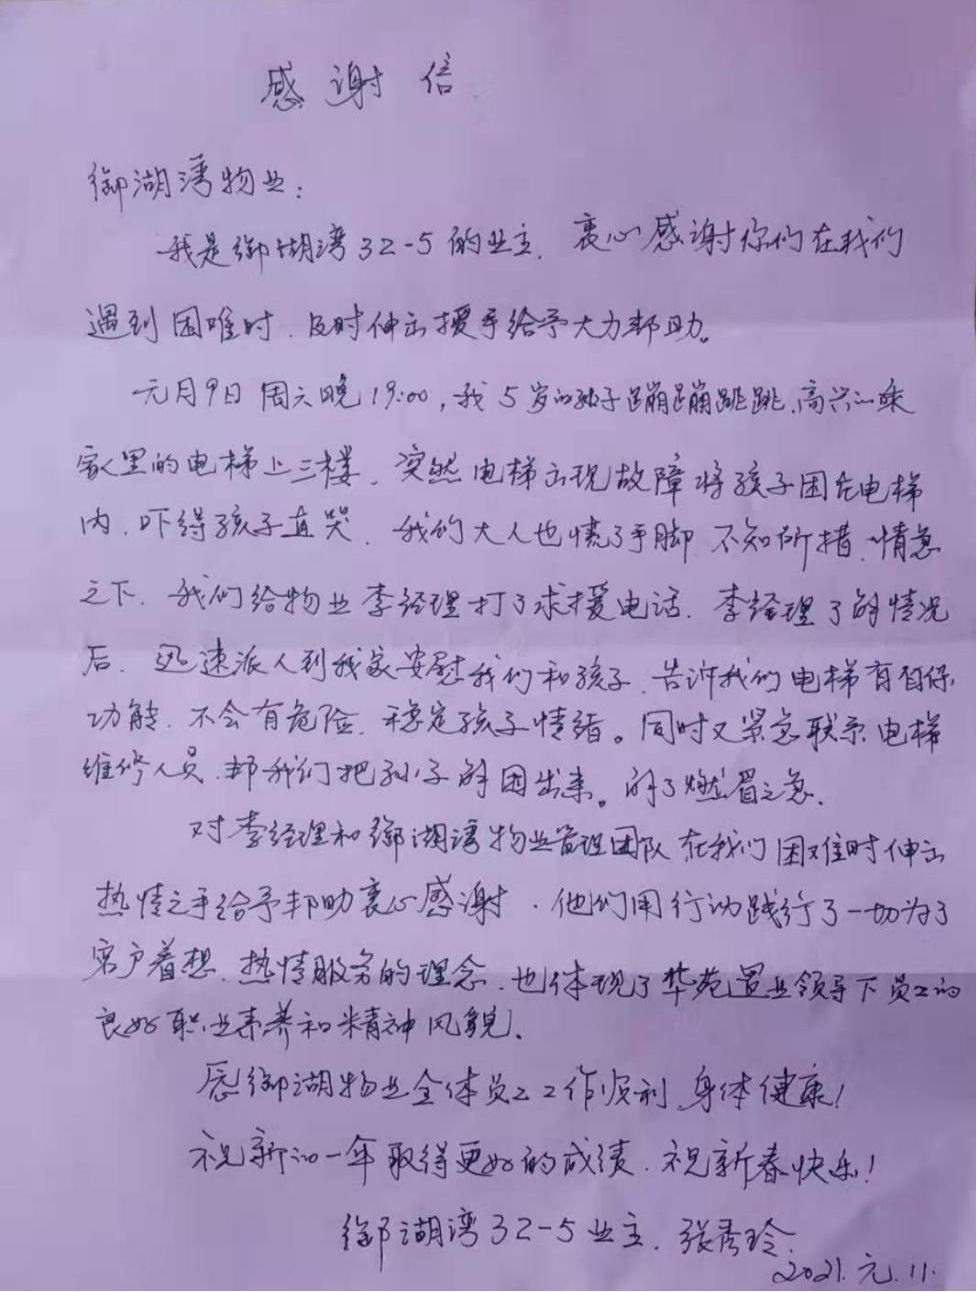 感谢信
御湖湾物业：
我是御湖湾32-5的业主，衷心感谢你们在我们
遇到困难时，及时伸出援手给予大力帮助。
元月9日周六晚19:00，我5岁的孙子蹦蹦跳跳，高兴的乘
家里的电梯上三楼，突然电梯出现故障将孩子困在电梯
内，吓得孩子直哭，我们大人也慌了手脚，不知所措，情急
之下，我们给物业李经理打了求援电话，李经理了解情况
后，迅速派人到我家安慰我们和孩子，告诉我们电梯有自保
功能，不会有危险，稳定孩子情绪。同时又紧急联系电梯
维修人员，帮我们把孙子解困出来。解了燃眉之急，
对李经理和御湖湾物业管理团队在我们困难时伸出
热情之手给予帮助衷心感谢，他们用行动践行了一切为了
客户着想，热情服务的理念，也体现了华苑置业领导下员工的
良好职业素养和精神风貌，
愿御湖物业全体员工工作顺利，身体健康！
祝新的一年取得更好的成绩，祝新春快乐！
御湖湾32-5业主，张秀玲，
2021.元.11.